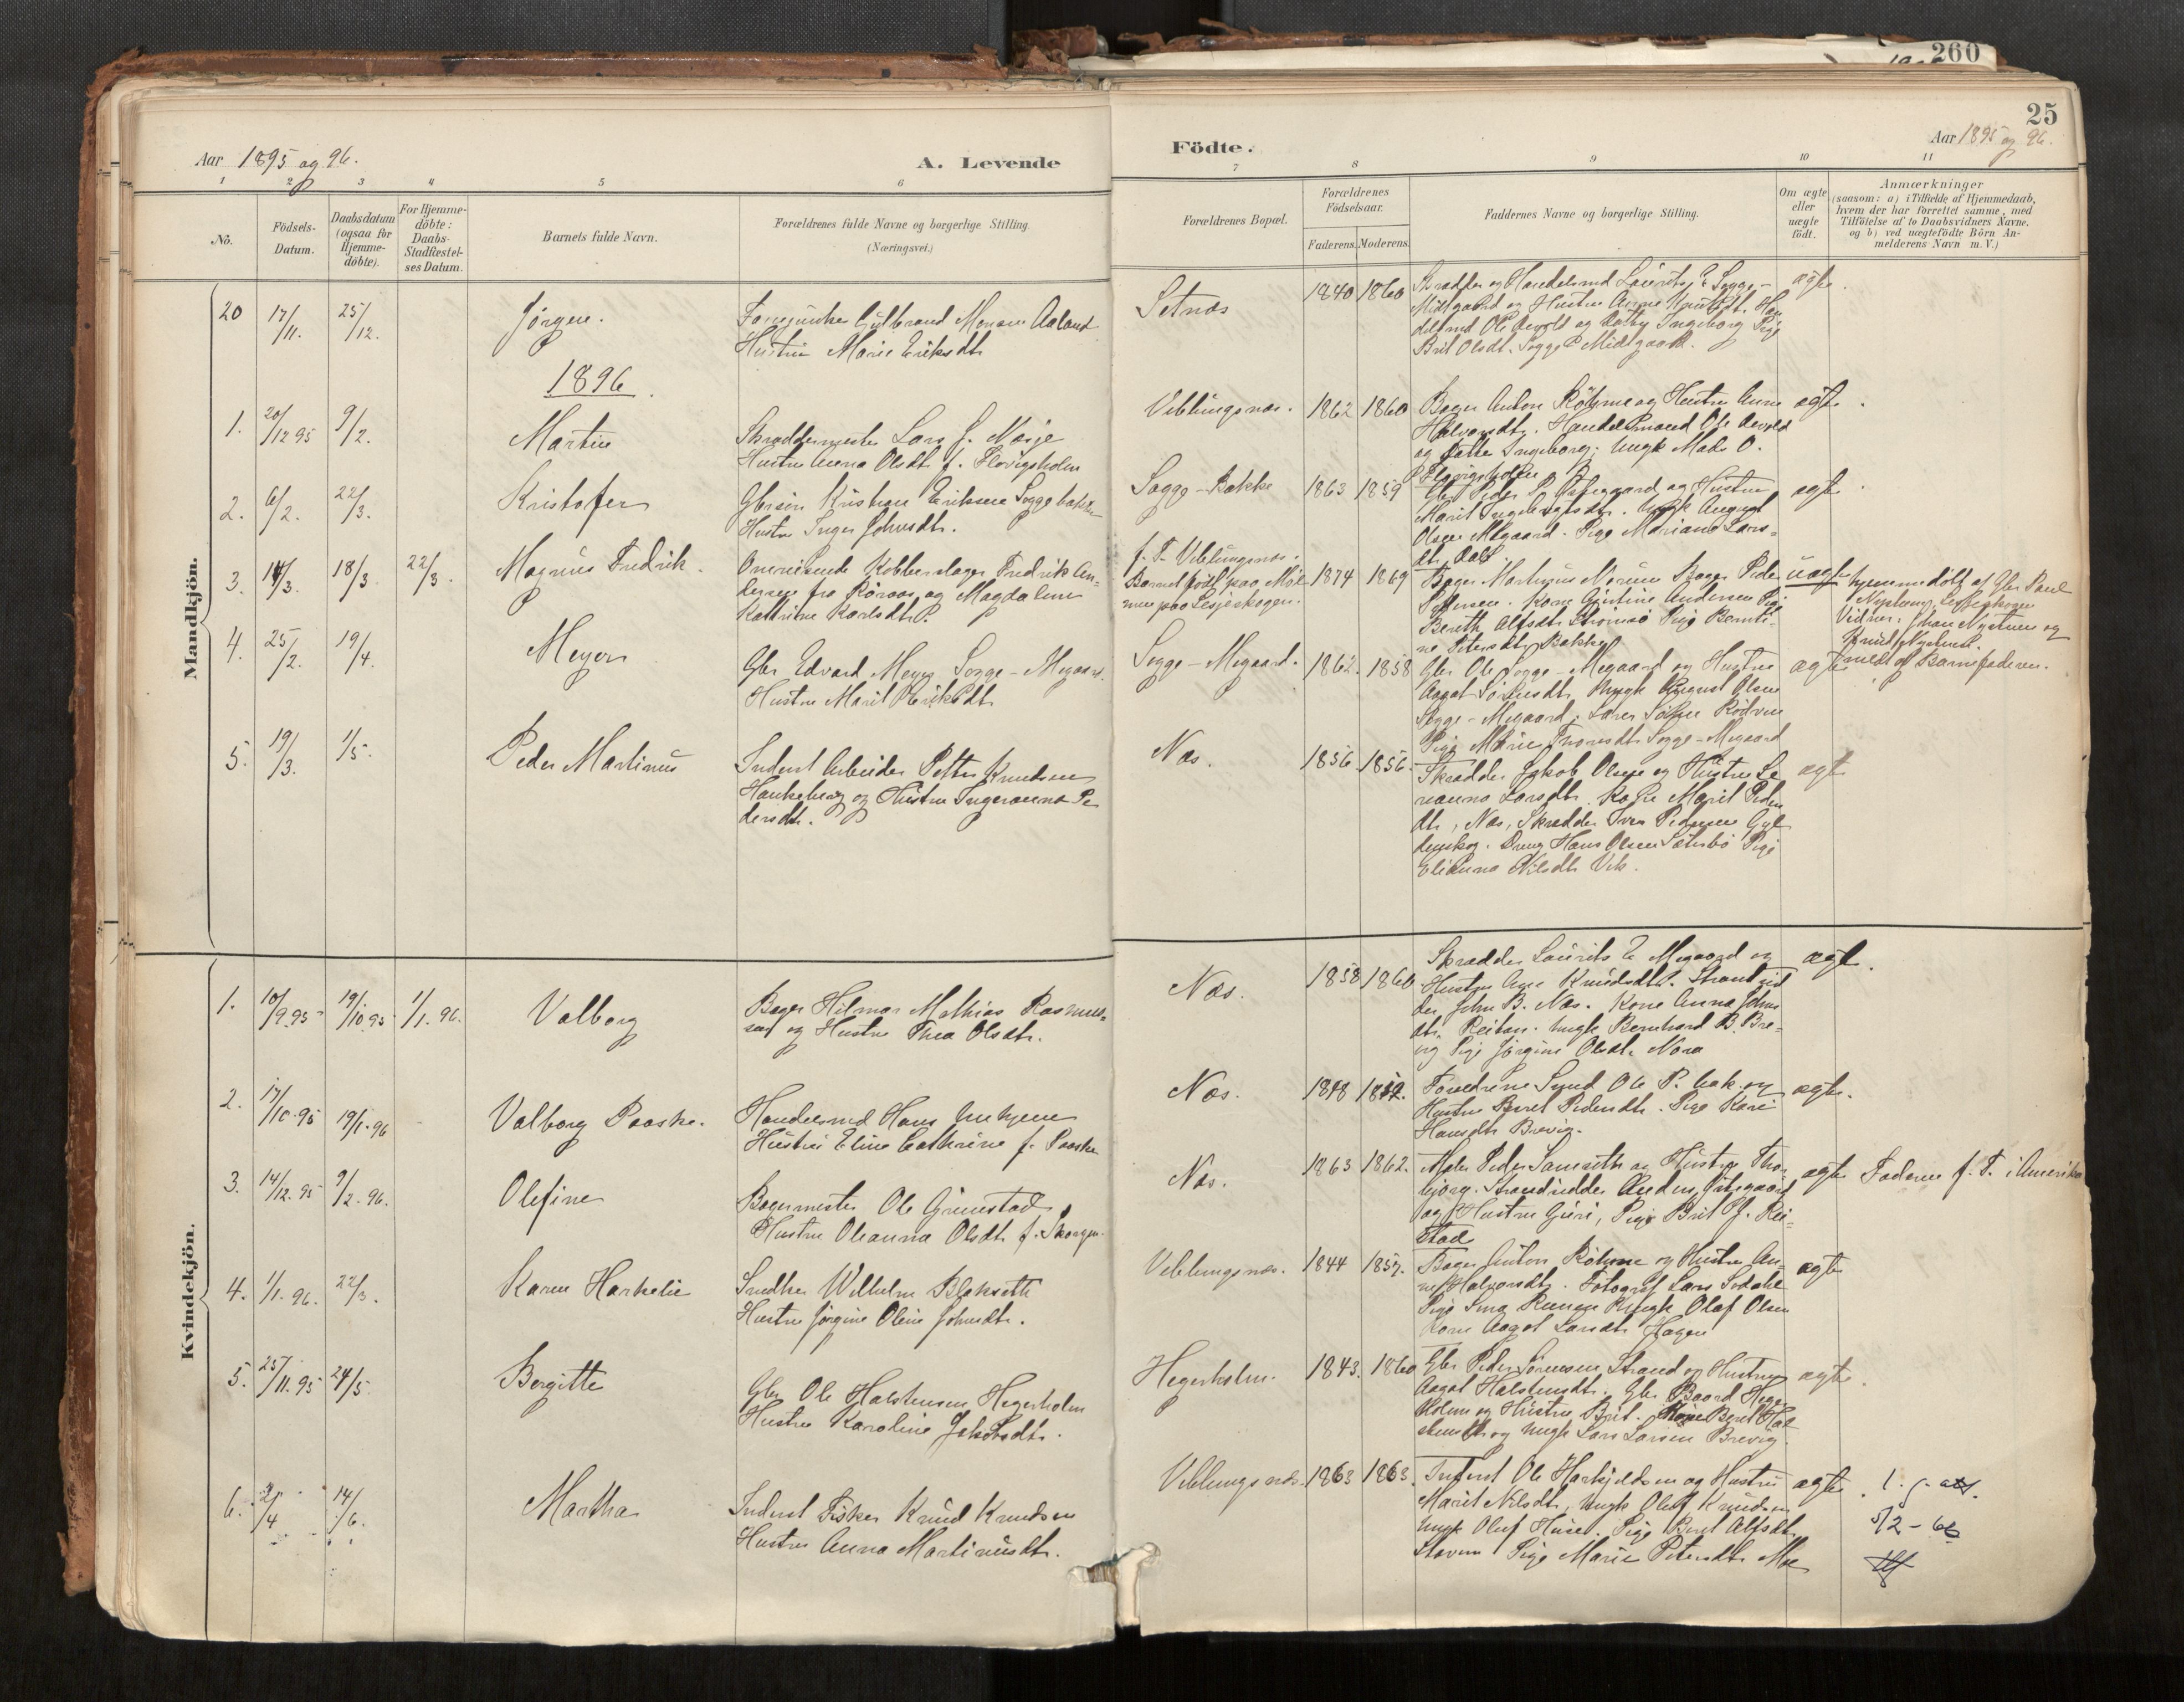 260
25
Aar 1895 og 96.
A. Levende
Födte.
Aar 1895 og 96.
1 2 3 4 5 6 7 8 9 10 11
No.
Födsels-
Datum.
Daabsdatum
(ogsaa for
Hjemme-
döbte).
For Hjemme-
döbte:
Daabs-
Stadfæstel-
ses Datum.
Barnets fulde Navn.
Forældrenes fulde Navne og borgerlige Stilling.
(Næringsvei.)
Forældrenes Bopæl.
Forældrenes
Födselsaar.
Faderens. Moderens.
Faddernes Navne og borgerlige Stilling.
Om ægte
eller
uægte
födt.
Anmærkninger
(saasom: a) i Tilfælde af Hjemmedaab,
hvem der har forrettet samme, med
Tilföielse af to Daabsvidners Navne,
og b) ved uægtefödte Börn An-
melderens Navn m. V.)
Mandkjön.
20 17/11. 25/12. Jørgen.
Gulbrand Monsen Aaland
Hustru Marie Eriksdtr
Setnæs
1840 1860
Skrædder og Handelsmd Laurits E Sogge-
Midtgaard og Hustru Anne Knutsdtr. Han
delsmd Ole Aevold og Datter Ingeborg Pige
Brit Olsdt. Sogge Midtgaard.
ægte.
1896.
1. 20/12 95 9/2. Martin
Skræddermester Lars J. Næsje
Hustru Anna Olsdtr f. Flovigsholm
Veblungsnæs. 1862 1860
Bager Anton Röhme og Hustru Anne
Halvorsdtr. Handelsmand Ole Aevold
og Datter Ingeborg; Ungk Mads O.
Flovigsholm
ægte.
2. 6/2. 22/3. Kristofer
Gbrsøn Kristian Eriksen Soggebakke
Hustru Inger Johnsdtr.
Sogge-Bakke 1863 1859
Gbr Peder P. og Hustru
Marit Ingebrigtsdtr. Ungk August
Olsen Megaard. Pige Mariane Lars-
dtr
ægte.
3. 14/3. 18/3. 22/3. Magnus Fredrik.
Omreisende Kobberslager Fredrik An-
dersen fra Röraas og Magdalene
Kathrine Karlsdtr.
f. T. Veblungsnæs.
Barnet født paa Møl-
men paa Lesjeskogen.
1874 1869
Bager Martinus Bager Peder
Pedersen. Kone Gjertine Andersen Pige
Bereth Alfsdtr Pige Bernti-
ne Petersdtr Bakke
uægte
hjemmedøbt af Gbr Paul
Nystuen, Lesjeskogen
Vidner: Johan Nystuen og
Knud Nystuen.
meldt af Barnefaderen.
4. 25/2. 19/4. Meyer
Gbr Edvard Meyer Sogge-Megaard.
Hustru Marit Eriksdtr
Sogge-Megaard. 1862. 1858
Gbr Ole Sogge-Megaard og Hustru
Aagot Ungk August Olsen
Sogge-Megaard; Lærer Rødven
Pige Marie Sogge-Megaard
ægte
5. 19/3. 1/5. Peder Martinus
Inderst Arbeider Petter Knudsen
Haukeberg og Hustru Ingeranna Pe
dersdtr.
Næs. 1856. 1856.
Skrædder Jakob Olsen og Hustru Se
reanna Larsdtr. Kone Marit Peder
dtr, Næs, Skrædder Iver Pedersen Gyl
denskog. Dreng Hans Olsen Sætersbø Pige
Elianna Nilsdtr Vik.
ægte
Kvindekjön.
1. 10/9.95 19/10.95 1/1. 96. Valborg
Bager Hilmar Mathias Rasmus-
sen og Hustru Thea Olsdtr.
Næs. 1858 1860
Skrædder Laurits E Megaard og
Hustru Ane Knudsdtr. Strandsid
der John B. Næs. Kone Anna Johns
dtr. Reitan. Ungk Bernhard B. Bre-
vig Pige Jørgine Olsdtr. Nora
ægte.
2. 17/10.95 19/1.96 Valborg Paaske.
Handelsmd Hans Unhjem
Hustru Eline Cathrine f. Paaske
Næs. 1848 1852.
Forældrene Ole P. Aak og
Hustru Beret Pedersdtr. Pige Kari
Hansdtr Brevig.
ægte.
3. 14/12.95 9/2.96. Olefine
Bagermester Ole Grimstad
Hustru Oleanna Olsdtr f. Skorgen.
Næs. 1863 1862.
Maler Peder Samseth og Hustru Thor
bjørg. Strandsidder Anders
og Hustru Guri, Pige Brit J. Rei-
stad
ægte
Faderen f. T. i Amerika
4. 1/1. 96. 22/3. Karen Harkelie
Snedker Wilhelm Blakseth
Hustru Jørgine Oline Johnsdtr.
Veblungsnæs. 1844 1857.
Bager Anton Röhme og Hustru An-
ne Halvorsdtr. Fotograf Lars Sødahl
Pige Ungk Olaf Olsen
Kone Aagot Larsdtr Hagen
ægte
5. 25/11.95 24/5. Bergitte
Gbr Ole Halstensen Hegerholm
Hustru Karoline Jakobsdtr.
Hegerholm. 1843. 1860
Gbr Peder Sørensen Strand og Hustru
Aagot Halstensdtr. Gbr Baard Heger
holm og Hustru Brit. Kone Beret Hal
stensdtr og Ungk Lars Larsen Brevig.
ægte.
6. 2/4 14/6. Martha
Inderst Fisker Knud Knudsen
Hustru Anna Martinusdtr.
Veblungsnæs. 1863 1863.
Inderst Ole Harkjeldsen og Hustru
Marit Nilsdtr, Ungk Oluf Knudsen
Ungk Oluf Huse. Pige Beret Alfsdtr
Stavem Pige Marie Petersdtr Moe
ægte.
1. g. att.
5/2-66